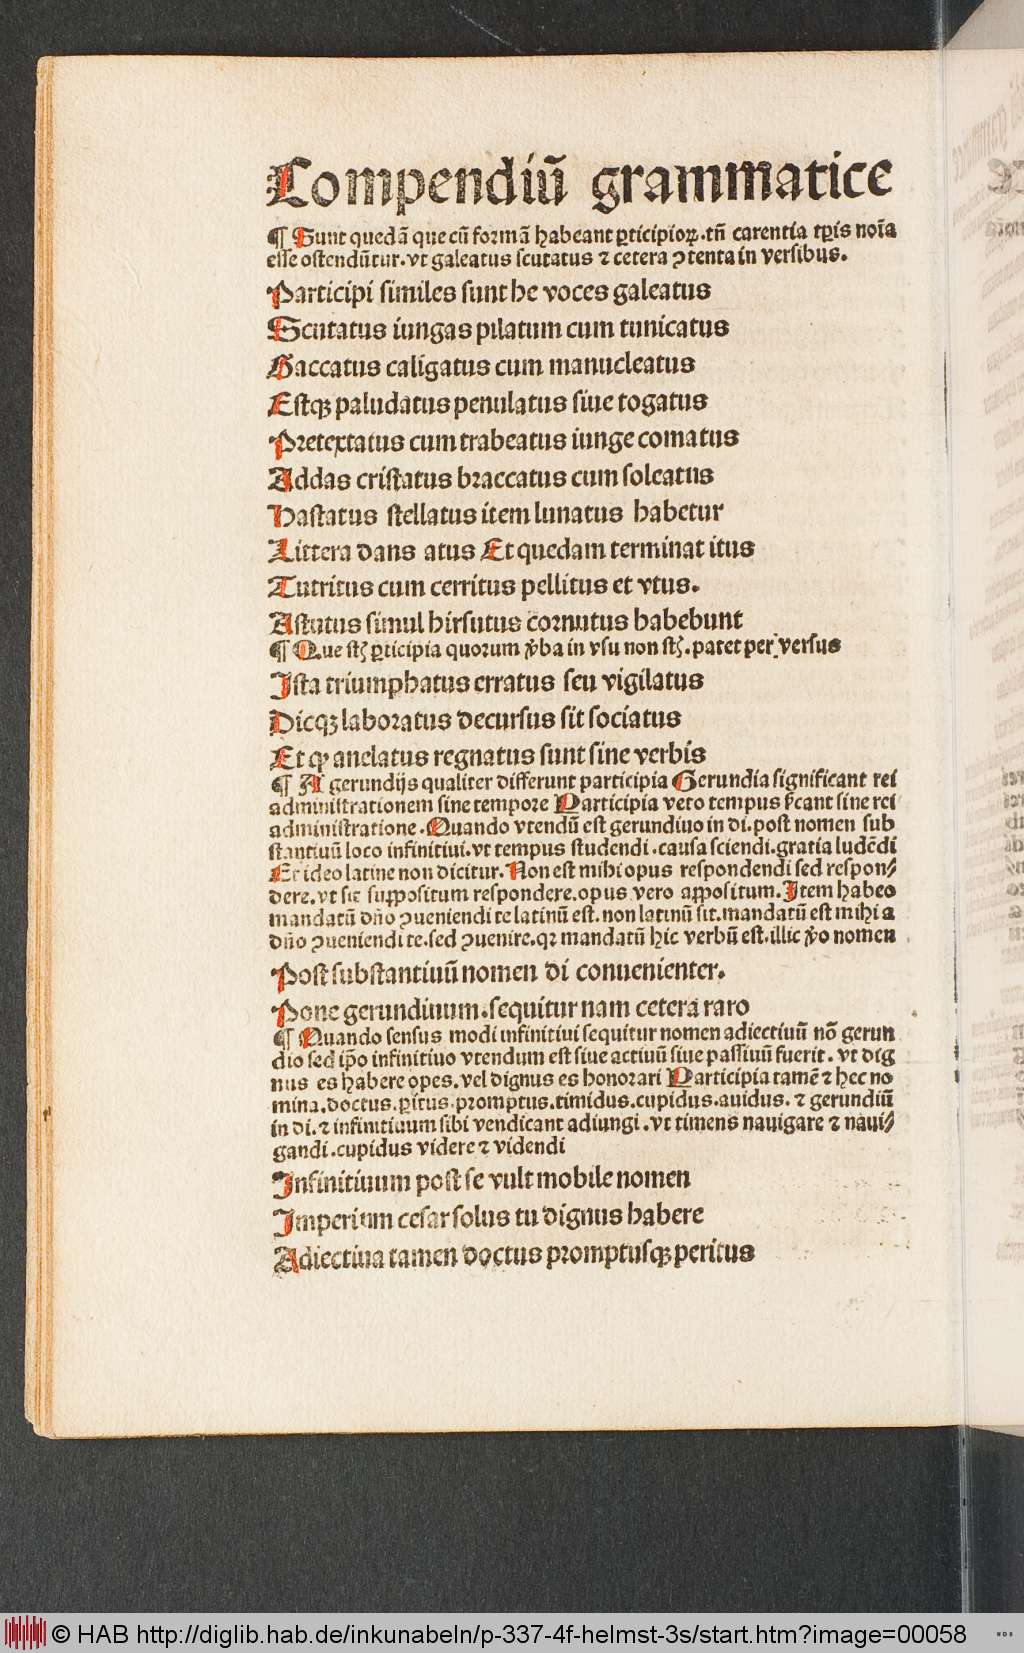 Compendiū grammatice
¶ Sunt quedā que cū formā habeant ꝑticipioꝝ.tn̄ carentia tꝑis noīa
esse ostendūtur.vt galeatus scutatus ⁊ cetera ꝯtenta in versibus.
Participi similes sunt he voces galeatus
Scutatus iungas pilatum cum tunicatus
Saccatus caligatus cum manucleatus
Estqꝫ paludatus penulatus siue togatus
Pretextatus cum trabeatus iunge comatus
Addas cristatus braccatus cum soleatus
Hastatus stellatus item lunatus habetur
Littera dans atus Et quedam terminat itus
Tutritus cum cerritus pellitus et vtus.
Astutus simul hirsutus cornutus habebunt
¶ Que st̄ ꝑticipia quorum v̄ba in vsu non st̄.patet per versus
Ista triumphatus erratus seu vigilatus
Dicqꝫ laboratus decursus sit sociatus
Et ꝙ anelatus regnatus sunt sine verbis
¶ A gerundijs qualiter differunt participia Gerundia significant rei
administrationem sine tempore Participia vero tempus s̄cant sine rei
administratione.Quando vtendū est gerundiuo in di.post nomen sub
stantiuū loco infinitiui.vt tempus studendi.causa sciendi.gratia ludēdi
Et ideo latine non dicitur.Non est mihi opus respondendi sed respon⸗
dere.vt sit suppositum respondere.opus vero appositum.Item habeo
mandatū dn̄o ꝯueniendi te latinū est.non latinū sit.mandatū est mihi a
dn̄o ꝯueniendi te.sed ꝯuenire.qꝛ mandatū hic verbū est.illic v̄o nomen
Post substantiuū nomen di conuenienter.
Pone gerundiuum.sequitur nam cetera raro
¶ Quando sensus modi infinitiui sequitur nomen adiectiuū nō gerun
dio sed ip̄o infinitiuo vtendum est siue actiuū siue passiuū fuerit.vt dig
nus es habere opes.vel dignus es honorari Participia tamē ⁊ hec no
mina.doctus.ꝑitus.promptus.timidus.cupidus.auidus.⁊ gerundiū
in di.⁊ infinitiuum sibi vendicant adiungi.vt timens nauigare ⁊ naui⸗
gandi.cupidus videre ⁊ videndi
Infinitiuum post se vult mobile nomen
Imperium cesar solus tu dignus habere
Adiectiua tamen doctus promptusqꝫ peritus
© HAB http://diglib.hab.de/inkunabeln/p-337-4f-helmst-3s/start.htm?image=00058